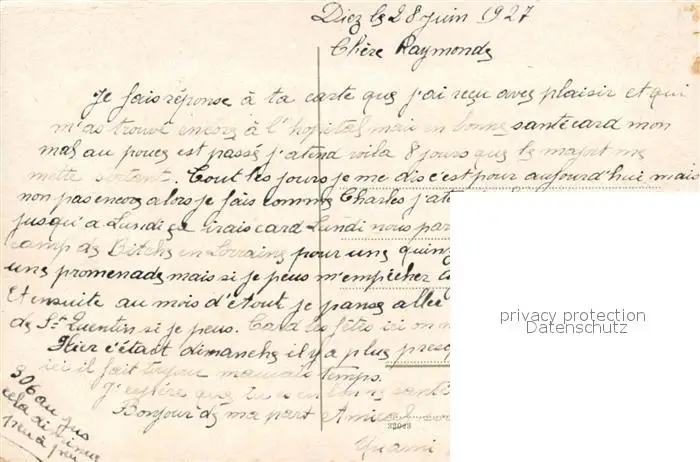 Diez le 28 juin 1927
Chère Raymonde
Je fais réponse à ta carte que j'ai reçu avec plaisir et qui
m'as trouvé encore à l'hopital mais en bonne santé card mon
mal au pouce est passé j'atend voila 8 jours que le majort me
mette sortant. Tout les jours je me dis c'est pour aujourd'hui mais
non pas encore alors je fais comme Charles j'at
jusqu'a Lundi irais card Lundi nous par
camp de Bitche en Lorraine pour une quin
une promenade mais si je peus m'empêcher
Et ensuite au mois d'etout je panse allée
de St Quentin si je peus. Card les fêtes ici on
Hier c'étadt dimanche il y a plus presq
ici il fait toujou mauvais temps.
J'espère que tu es en bonne santé
Bonjour de ma part
306 au jus
cela diminue
peu à peu
32043
privacy protection
Datenschutz